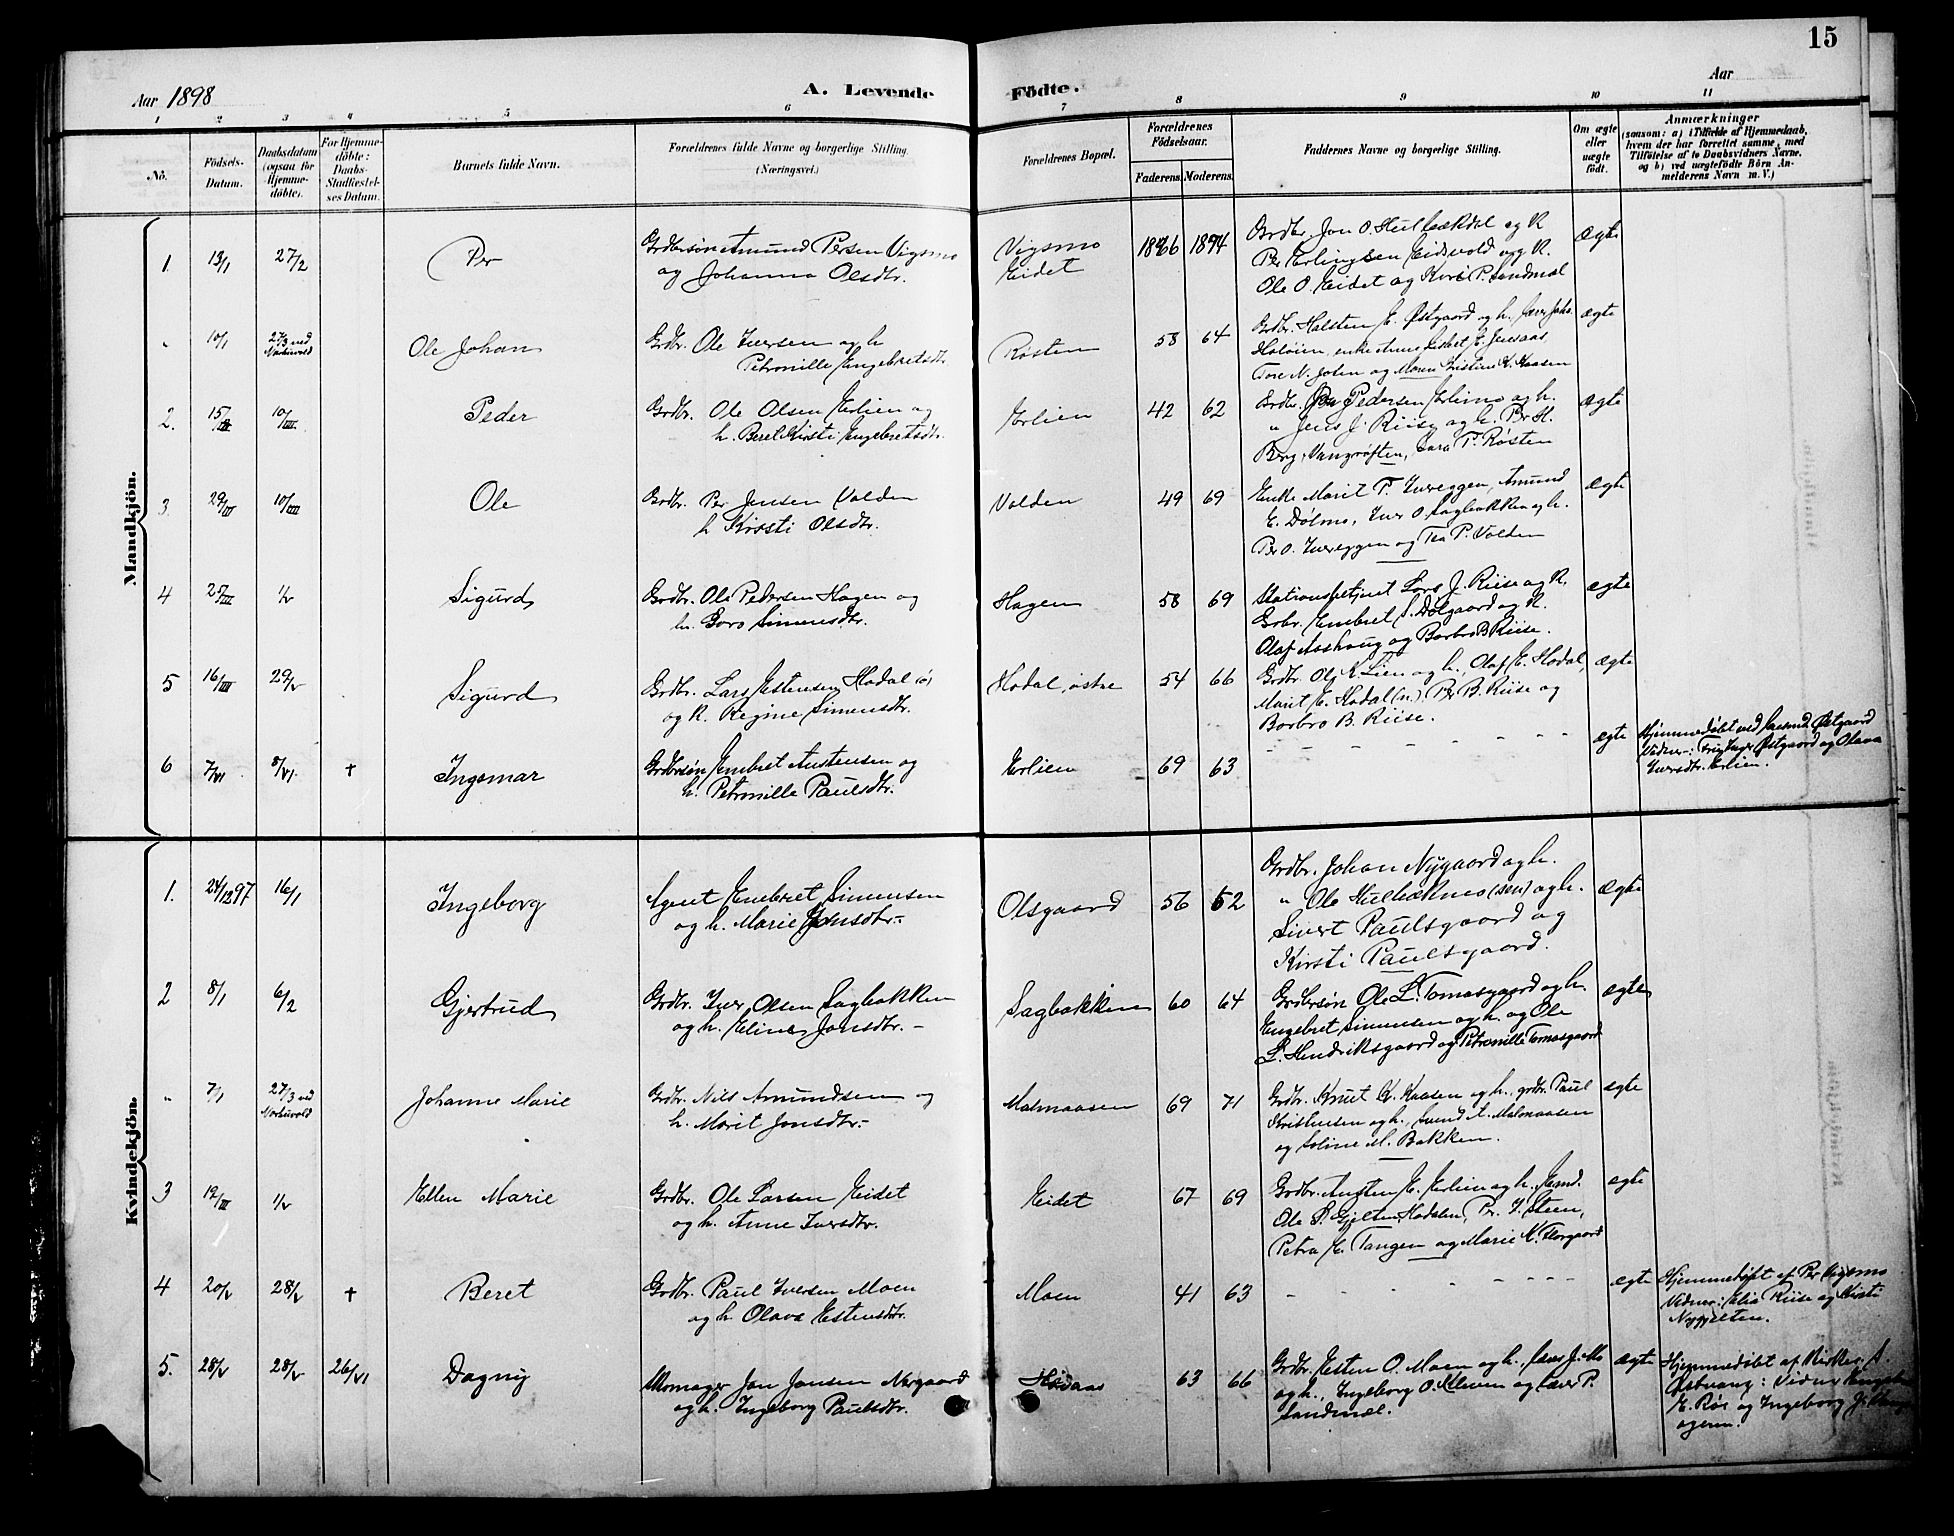 15
Aar 1898
A. Levende Födte.
Aar
1 2 3 4 5 6 7 8 9 10 11
No.
Födsels-Datum.
Daabsdatum (ogsaa for Hjemme-döbte).
For Hjemme-döbte: Daabs-Stadfæstel-ses Datum.
Barnets fulde Navn.
Forældrenes fulde Navne og borgerlige Stilling. (Næringsvei.)
Forældrenes Bopæl.
Forældrenes Födselsaar.
Faderens. Moderens.
Faddernes Navne og borgerlige Stilling.
Om ægte eller uægte födt.
Anmærkninger
(saasom: a) i Tilfælde af Hjemmedaab, hvem der har forrettet samme, med Tilföielse af to Daabsvidners Navne, og b) ved uægtefödte Börn An-melderens Navn m. V.)
Mandkjön.
1. 13/1 27/2 Per
Grdbrsøn Amund Persen Vigsmo
og Johanna Olsdtr.
Vigsmo
Eidet
1866 1874
Grdbr. Jon O. Hulbækdal og K.
Per Erlingsen Eidsvold og K.
Ole O. Eidet og Kari P. Sandmæl
ægte
" 10/1 27/3 ved Narbuvold Ole Johan
Grdbr. Ole Iversen og h.
Petronille Engebretsdtr.
Røsten
58 64
Grdbr. Halsten E. Østgaard og h.
Holøien, enke Anne Lisbet E. Jensaas,
Tore N. Joten og Maren Kristine K. Kaasen
ægte
2. 15/II 10/III Peder
Grdbr. Ole Olsen Erlien og
h. Beret Kirsti Engebretsdtr.
Erlien
42 62
Grdbr. Per Pedersen Erlimo og h.
" Jens J. Riise og h. Per H.
Berg, Vangrøften, Sara T. Røsten
ægte
3. 29/III Ole
Grdbr. Per Jensen Volden
h. Kirsti Olsdtr.
Volden
49 69
Enke Marit P. Ivereggen, Amund
E. Dølmo, Iver O. Sagbakken og h.
Per O. Ivereggen og Tea P. Volden
ægte
4 25/III 1/V Sigurd
Grdbr. Ole Pedersen Hagen og
h. Goro Simensdtr.
Hagen
58 69
Stationsbetjent Lars J. Riise og K.
Grbr. Embret S. Dølgaard og K.
Olaf Aashaug og Borbro B. Riise.
ægte
5 16/III 29/V Sigurd
Grdbr. Lars Estensen Hodal (ø)
og K. Regine Simensdtr.
Hodal, østre
54 66
Grdbr. Ole K. Lien og h., Olaf E. Hodal,
Marit E. Hodal (n.) Per B. Riise og
Borbro B. Riise.
ægte
6 7/VI 8/VI † Ingemar
Grdbrsøn Embret Austensen og
h. Petronille Paulsdtr.
Erlien
69 63
ægte
Hjemmedøbt ved Østgaard
Vidner: Østgaard og Olava
Iversdtr. Erlien.
Kvindekjön.
1. 24/12 97 16/1 Ingeborg
Agent Embret Simensen
og h. Marie Jonsdtr. -
Olsgaard
56 52
Grdbr. Johan Nygaard og h.
" Ole Hulbækmo (søn) og h.
Sivert Paulsgaard og
Kirsti Paulsgaard.
ægte
2 8/1 6/2 Gjertrud
Grdbr. Iver Olsen Sagbakken
og h. Eline Jonsdtr. -
Sagbakken
60 64
Grdbrsøn Ole L. Tomasgaard og h.
Engebret Simensen og h. og Ole
L. Hendriksgaard og Petronille Tomasgaard
ægte
" 7/1 27/3 ved Narbuvold Johanne Marie
Grdbr. Nils Amundsen og
h. Marit Jonsdtr. -
Malmaasen
69 71
Grdbr. Knut K. Kaasen og h., grdbr. Paul
Kristensen og h., A. Malmaasen
og Soline M. Bakken.
ægte
3 12/III 1/V Ellen Marie
Grdbr. Ole Larsen Eidet
og h. Anne Iversdtr.
Eidet
67 69
Grdbr. Austen E. Erlien og h.
Ole P. Gjelten, Hodalen, Per J. Steen,
Petra E. Tangen og Marie K. Florgaard
ægte
4 20/V 28/V † Beret
Grdbr. Paul Iversen Moen
og h. Olava Estensdtr.
Moen
41 63
ægte
Hjemmedøbt af Per Vigsmo
Vidner: Elia Riise og Kirsti
Nygjelten.
5. 28/V 28/V 26/VI Dagny
Skomager Jon Jonsen Norgaard
og h. Ingeborg Paulsdtr.
63 66
Grdbr. Esten O. Moen og h.,
og h., Ingeborg O. Kleven og P.
Sandmæl.
ægte
Hjemmedøbt af
Vidner
E. Røe og Ingeborg J.